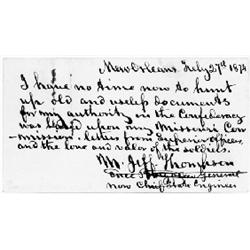 New Orleans, July 27th 1874
I have no time now to hunt
up old and useless documents
for my authority in the Confederacy
was based upon my Missouri Com-
mission - letters from Superior Officers,
and the love and valor of the soldiers.
M. Jeff. Thompson
once General
now Chief State Engineer